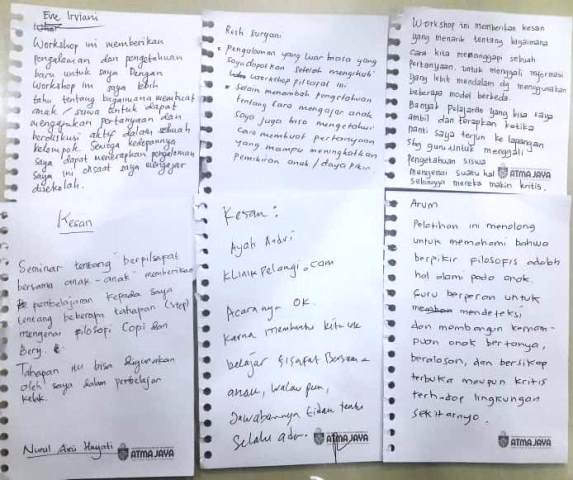 Eve Irviani
Workshop ini memberikan
pengalaman dan pengetahuan
baru untuk saya. Dengan
Workshop ini saya lebih
tahu tentang bagaimana membuat
anak / siswa untuk dapat
mengajukan pertanyaan dan
berdiskusi aktif dalam sebuah
kelompok. Semoga kedepannya
saya dapat menerapkan pengalaman
saya ini disaat saya mengajar
disekolah.
Resti Suryani
Pengalaman yang luar biasa yang
saya dapatkan setelah mengikuti
workshop filsafat ini
Selain menambah pengetahuan
tentang cara mengajar anak
saya juga bisa mengetahui
cara membuat pertanyaan
yang mampu meningkatkan
pemikiran anak / daya pikir
Workshop ini memberikan kesan
yang menarik tentang bagaimana
cara kita menanggapi sebuah
pertanyaan. untuk menggali informasi
yang lebih mendalam dg menggunakan
beberapa model berbeda.
Banyak pelajaran yang bisa saya
ambil dan terapkan ketika
nanti saya terjun ke lapangan
sbg guru. Untuk menggali
pengetahuan siswa
mengenai suatu hal ATMA JAYA
sehingga mereka makin kritis.
Kesan
Seminar tentang berfilsafat
bersama anak-anak memberikan
pembelajaran kepada saya
tentang beberapa tahapan (step)
mengenai filosofi Copi dan
Berg.
Tahapan itu bisa digunakan
oleh saya dalam pembelajar
kelak.
Nurul Aini Hayati ATMA JAYA
Kesan :
Ayah Andri
Klinikpelangi.com
Acaranya OK.
Karna membantu kita utk
belajar filsafat Bersama
anak, walau pun,
Jawabannya tidak tentu
Selalu ada. ATMA JAYA
Arum
Pelatihan ini menolong
untuk memahami bahwa
berpikir filosofis adalah
hal alami pada anak.
Guru berperan untuk
mendeteksi
dan membangun kemam-
puan anak bertanya,
beralasan, dan bersikap
terbuka maupun kritis
terhadap lingkungan
sekitarnya.
ATMA JAYA